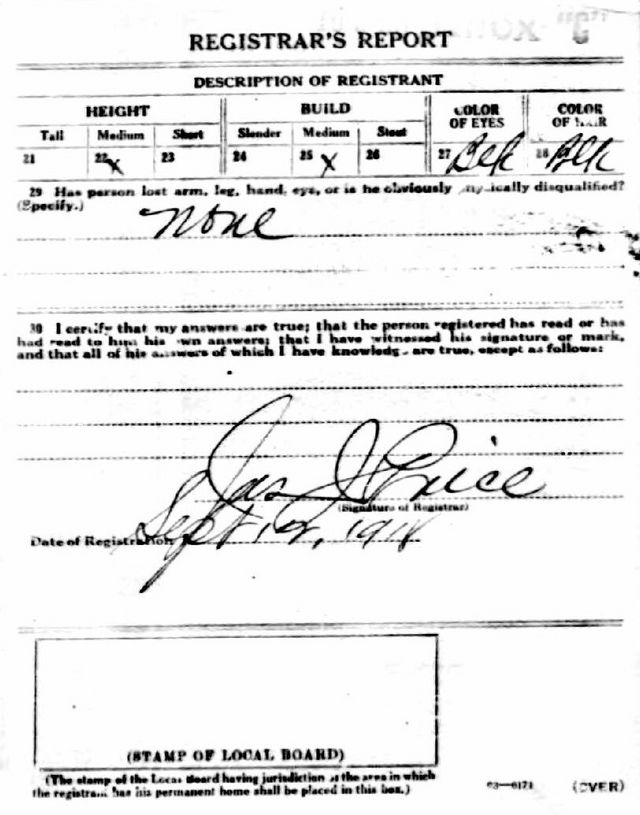 REGISTRAR'S REPORT
DESCRIPTION OF REGISTRANT
HEIGHT BUILD COLOR OF EYES COLOR OF HAIR
Tall Medium Short Slender Medium Stout
21 22 x 23 24 25 x 26 27 Blk 28 Blk
29 Has person lost arm, leg, hand, eye, or is he obviously physically disqualified?
(Specify.) None
30 I certify that my answers are true; that the person registered has read or has
had read to him his own answers; that I have witnessed his signature or mark,
and that all of his answers of which I have knowledge are true, except as follows:
Jas J Price
(Signature of Registrar)
Date of Registration Sept 12, 1918
(STAMP OF LOCAL BOARD)
(The stamp of the Local Board having jurisdiction of the area in which
the registrant has his permanent home shall be placed in this box.)
63—6171 (OVER)